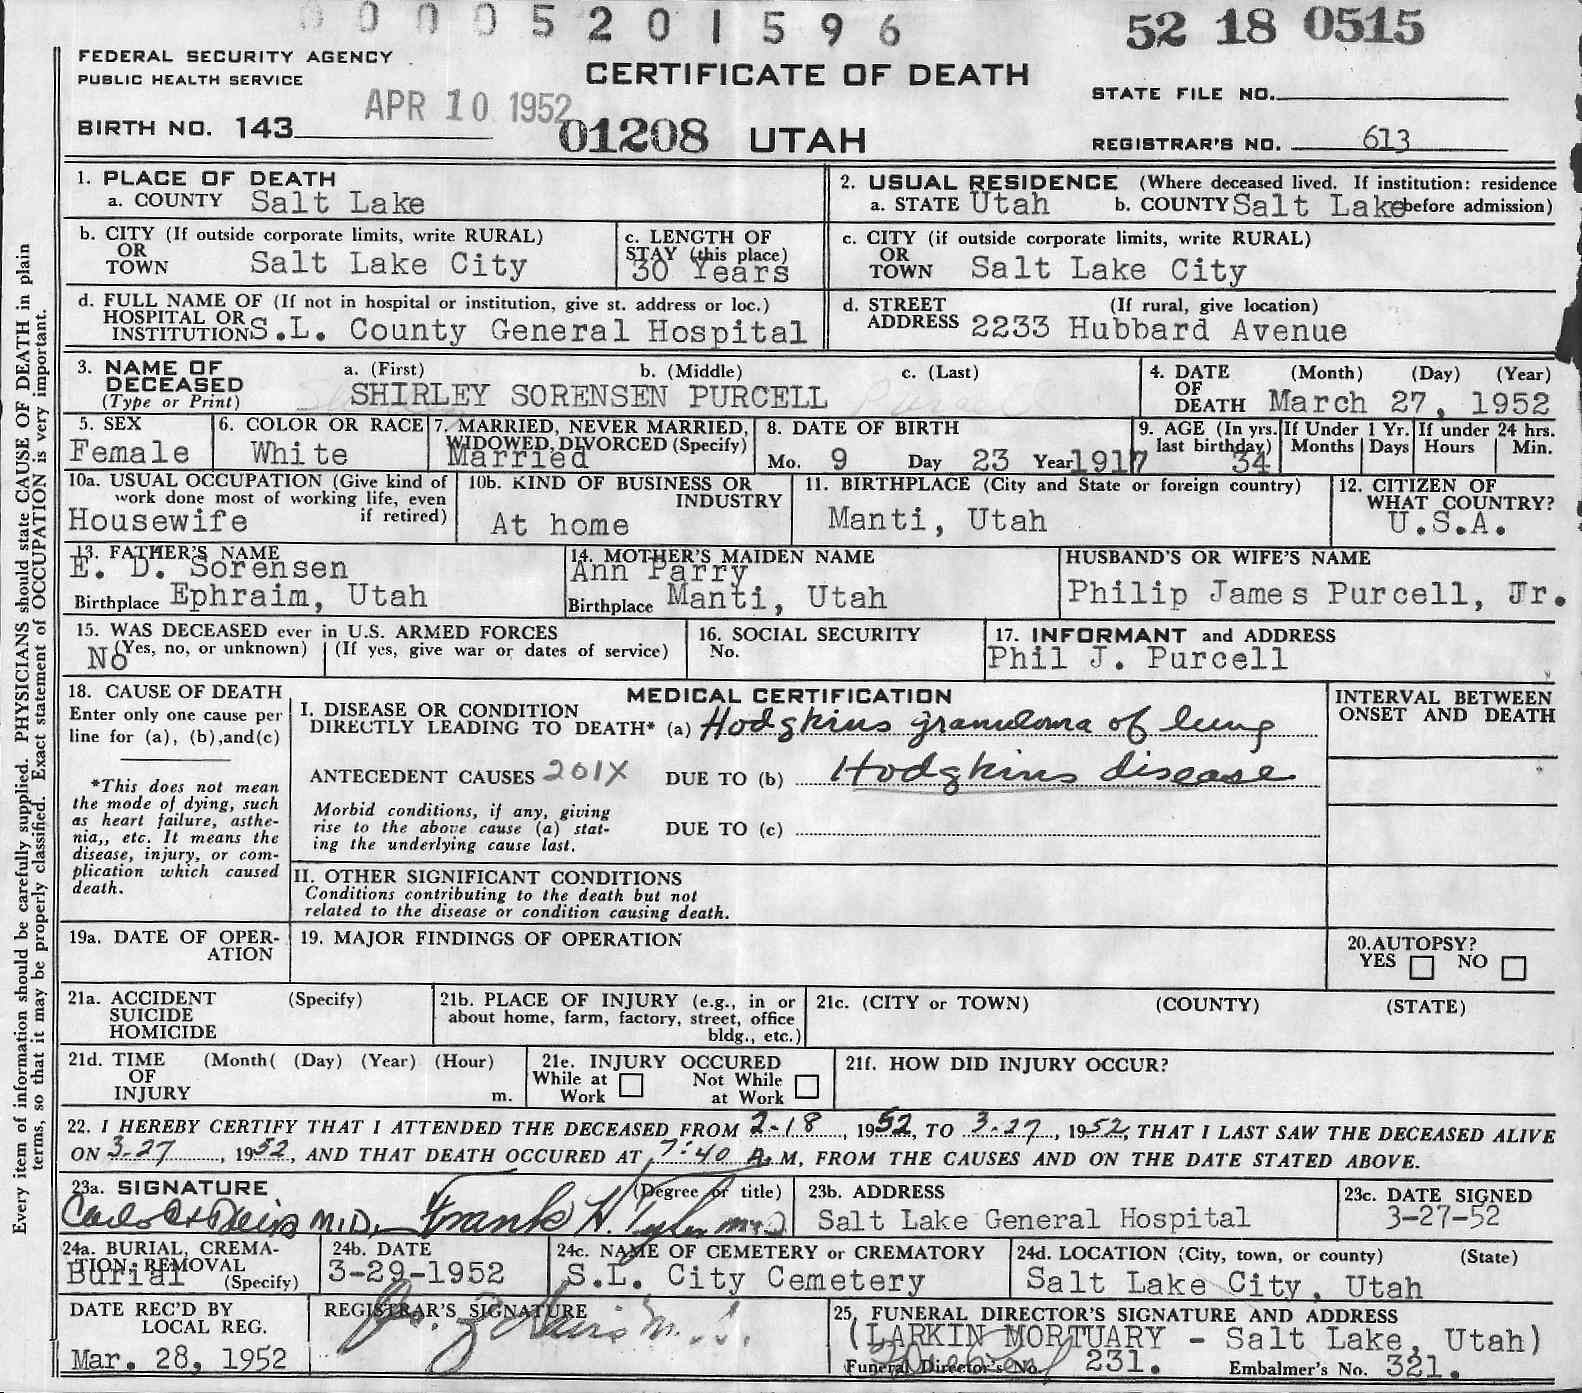 0 0 0 5 2 0 1 5 9 6
52 18 0515
FEDERAL SECURITY AGENCY
PUBLIC HEALTH SERVICE
CERTIFICATE OF DEATH
STATE FILE NO.
APR 10 1952
BIRTH NO. 143
01208 UTAH
REGISTRAR'S NO. 613
1. PLACE OF DEATH
a. COUNTY Salt Lake
2. USUAL RESIDENCE (Where deceased lived. If institution: residence before admission)
a. STATE Utah b. COUNTY Salt Lake
b. CITY (If outside corporate limits, write RURAL)
OR
TOWN Salt Lake City
c. LENGTH OF
STAY (this place)
30 Years
c. CITY (if outside corporate limits, write RURAL)
OR
TOWN Salt Lake City
d. FULL NAME OF (If not in hospital or institution, give st. address or loc.)
HOSPITAL OR
INSTITUTION S.L. County General Hospital
d. STREET (If rural, give location)
ADDRESS 2233 Hubbard Avenue
3. NAME OF
DECEASED
(Type or Print)
a. (First) b. (Middle) c. (Last)
SHIRLEY SORENSEN PURCELL
4. DATE (Month) (Day) (Year)
OF
DEATH March 27, 1952
5. SEX
Female
6. COLOR OR RACE
White
7. MARRIED, NEVER MARRIED,
WIDOWED, DIVORCED (Specify)
Married
8. DATE OF BIRTH
Mo. 9 Day 23 Year 1917
9. AGE (In yrs.
last birthday)
34
If Under 1 Yr.
Months Days
If under 24 hrs.
Hours Min.
10a. USUAL OCCUPATION (Give kind of
work done most of working life, even
if retired)
Housewife
10b. KIND OF BUSINESS OR
INDUSTRY
At home
11. BIRTHPLACE (City and State or foreign country)
Manti, Utah
12. CITIZEN OF
WHAT COUNTRY?
U.S.A.
13. FATHER'S NAME
E. D. Sorensen
Birthplace Ephraim, Utah
14. MOTHER'S MAIDEN NAME
Ann Parry
Birthplace Manti, Utah
HUSBAND'S OR WIFE'S NAME
Philip James Purcell, Jr.
15. WAS DECEASED ever in U.S. ARMED FORCES
(Yes, no, or unknown) (If yes, give war or dates of service)
No
16. SOCIAL SECURITY
No.
17. INFORMANT and ADDRESS
Phil J. Purcell
18. CAUSE OF DEATH
Enter only one cause per
line for (a), (b),and(c)
*This does not mean
the mode of dying, such
as heart failure, asthe-
nia,, etc. It means the
disease, injury, or com-
plication which caused
death.
MEDICAL CERTIFICATION
I. DISEASE OR CONDITION
DIRECTLY LEADING TO DEATH* (a) Hodgkins granuloma of lung
ANTECEDENT CAUSES 201X DUE TO (b) Hodgkins disease
Morbid conditions, if any, giving
rise to the above cause (a) stat-
ing the underlying cause last.
DUE TO (c)
II. OTHER SIGNIFICANT CONDITIONS
Conditions contributing to the death but not
related to the disease or condition causing death.
INTERVAL BETWEEN
ONSET AND DEATH
19a. DATE OF OPER-
ATION
19. MAJOR FINDINGS OF OPERATION
20.AUTOPSY?
YES NO
21a. ACCIDENT (Specify)
SUICIDE
HOMICIDE
21b. PLACE OF INJURY (e.g., in or
about home, farm, factory, street, office
bldg., etc.)
21c. (CITY or TOWN) (COUNTY) (STATE)
21d. TIME (Month( (Day) (Year) (Hour)
OF
INJURY m.
21e. INJURY OCCURED
While at Work Not While at Work
21f. HOW DID INJURY OCCUR?
22. I HEREBY CERTIFY THAT I ATTENDED THE DECEASED FROM 2-18, 1952, TO 3-27, 1952, THAT I LAST SAW THE DECEASED ALIVE
ON 3-27, 1952, AND THAT DEATH OCCURED AT 7:40 A.M, FROM THE CAUSES AND ON THE DATE STATED ABOVE.
23a. SIGNATURE (Degree or title)
M.D. Frank H. Tyler M.D.
23b. ADDRESS
Salt Lake General Hospital
23c. DATE SIGNED
3-27-52
24a. BURIAL, CREMA-
TION, REMOVAL
(Specify)
Burial
24b. DATE
3-29-1952
24c. NAME OF CEMETERY or CREMATORY
S.L. City Cemetery
24d. LOCATION (City, town, or county) (State)
Salt Lake City, Utah
DATE REC'D BY
LOCAL REG.
Mar. 28, 1952
REGISTRAR'S SIGNATURE
25. FUNERAL DIRECTOR'S SIGNATURE AND ADDRESS
(LARKIN MORTUARY - Salt Lake, Utah)
Funeral Director's No. 231. Embalmer's No. 321.
Every item of information should be carefully supplied. PHYSICIANS should state CAUSE OF DEATH in plain
terms, so that it may be properly classified. Exact statement of OCCUPATION is very important.